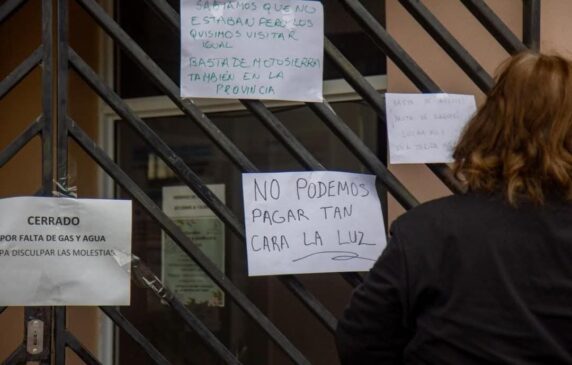 SABÍAMOS QUE NO
ESTABAN PERO LOS
QUISIMOS VISITAR
IGUAL
BASTA DE MOTUSIERRA
TAMBIÉN EN LA
PROVINCIA
BASTA DE
NO PODEMOS
PAGAR TAN
CARA LA LUZ
CERRADO
POR FALTA DE GAS Y AGUA
PA DISCULPAR LAS MOLESTIAS